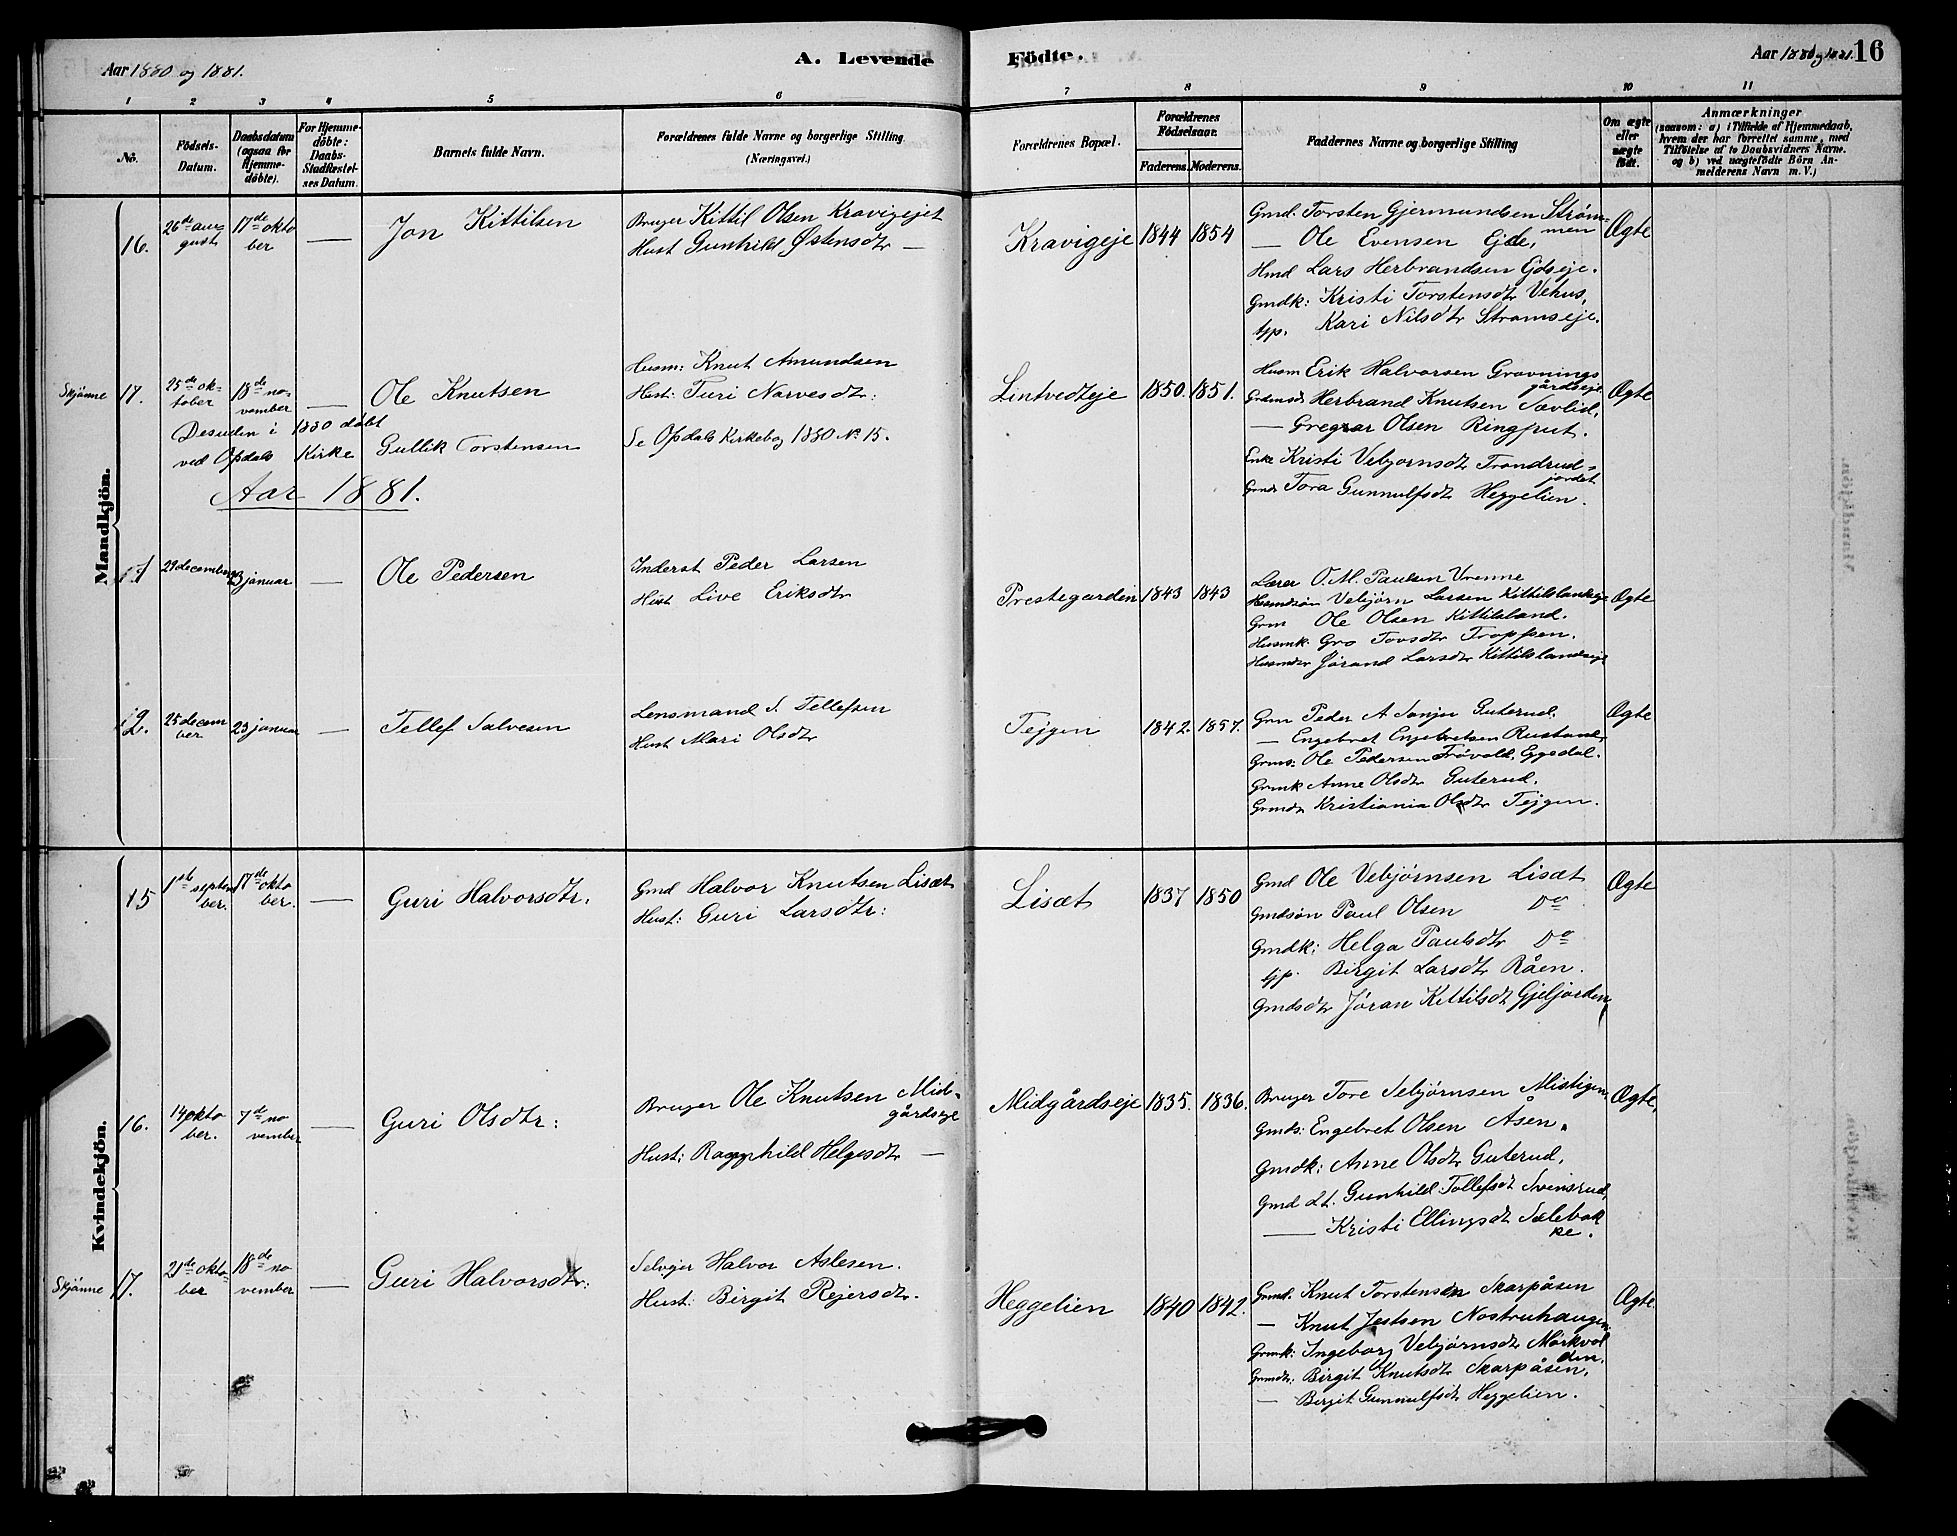 Aar 1880 og 1881.
A. Levende
Födte.
Aar 1880 og 1881.
16
1 2 3 4 5 6 7 8 9 10 11
No.
Födsels-
Datum.
Daabsdatum
(ogsaa for
Hjemme-
döbte).
For Hjemme-
döbte:
Daabs-
Stadfæstel-
ses Datum.
Barnets fulde Navn.
Forældrenes fulde Navne og borgerlige Stilling
(Næringsvei.)
Forældrenes Bopæl.
Forældrenes
Födselsaar.
Faderens.
Moderens.
Faddernes Navne og borgerlige Stilling
Om ægte
eller
uægte
födt.
Anmærkninger
(saasom: a) i Tilfælde af Hjemmedaab,
hvem der har forrettet samme, med
Tilföielse af to Daabsvidners Navne.
og b) ved uægtefödte Börn An-
melderens Navn m. V.)
Mandkjön.
16.
26de au-
gust
17de okto
ber
—
Jon Kittilsen
Bruger Kittil Olsen Kravigejet
Hust Gunhild Østensdtr —
Kravigeje
1844
1854
Gmd. Torsten Gjermundsen Strøm-
men
— Ole Evensen Ejde,
Hmd Lars Herbrandsen Gdseje.
Gmdk: Kristi Torstensdtr Vehus,
Kari Nilsdtr Strømseje.
Ægte
Skjønne
17.
25de ok-
tober
18de no-
vember
—
Ole Knutsen
Husm: Knut Amundsen
Hust: Turi Narvesdtr:
Lintvedteje
1850.
1851.
Husm Erik Halvorsen Gravnings
gårdseje
Herbrand Knutsen Sævlid,
— Gregar Olsen Ringput.
Enke Kristi Vebjørnsdt Trondrud-
jordet
Tora Gunnulfsdt Heggelien.
Ægte
Desuden i 1880 døbt
ved Opdals Kirke
Gullik Torstensen
Se Opdals Kirkebog 1880 No 15.
Aar 1881.
29 december
23 januar
—
Ole Pedersen
Inderst Peder Larsen
Hust Live Eriksdtr
Prestegarden
1843
1843
Lærer O. M. Paulsen Vrenne
Husmdsøn Vebjørn Larsen Kittilslandseje
Grm Ole Olsen Kittilsland.
Husmk. Gro Tovsdtr Troppen.
Husmdtr Jørand Larsdtr Kittilslandseje
Ægte
2.
25 decem
ber
23 januar
—
Tellef Salvesen
Lensmand S. Tellefsen
Hust Mari Olsdtr
Tejgen
1842.
1857.
Grm Peder A Guterud.
— Engebret Engebretsen Rustand
Grms: Ole Pedersen Frøvold, Eggedal.
Grmk Anne Olsdtr Guterud.
Grmdtr Kristiania Olsdtr Tejgen.
Ægte
Kvindekjön.
15
1ste septem
ber.
17de okto
ber.
—
Guri Halvorsdtr.
Gmd Halvor Knutsen Lisæt
Hust: Guri Larsdtr:
Lisæt
1837
1850
Gmd Ole Vebjørnsen Lisæt
Gmdsøn Paul Olsen Do
Gmdk: Helga Paulsdtr Do
Birgit Larsdtr Råen.
Gmdsdtr Jøran Kittilsdt Gjeljorden
Ægte
16.
14 okto
ber.
7de no
vember
Guri Olsdtr:
Bruger Ole Knutsen Mid-
gårdseje
Hust: Ragnhild Helgesdtr —
Midgårdseje
1835.
1836.
Bruger Tore Sebjørnsen Mistigen
Gmds: Engebret Olsen Åsen.
Gmdk: Anne Olsdtr Guterud.
Gmd dt. Gunhild Tollefsdt Svinsrud,
— Kristi Ellingsdt Sælebak
ke.
Ægte.
Skjønne
17.
21de okto-
ber
18de no
vember
—
Guri Halvorsdtr:
Selvejer Halvor Aslesen.
Hust: Birgit Rejersdtr.
Heggelien
1840
1842.
Grmd. Knut Torstensen Skarpåsen
— Knut Nostruhaugen
Grmk: Ingeborg Vebjørnsdtr Mørkvol
den.
Grmdtr: Birgit Knutsdtr Skarpåsen,
— Birgit Gunnulfsdtr Heggelien.
Ægte.